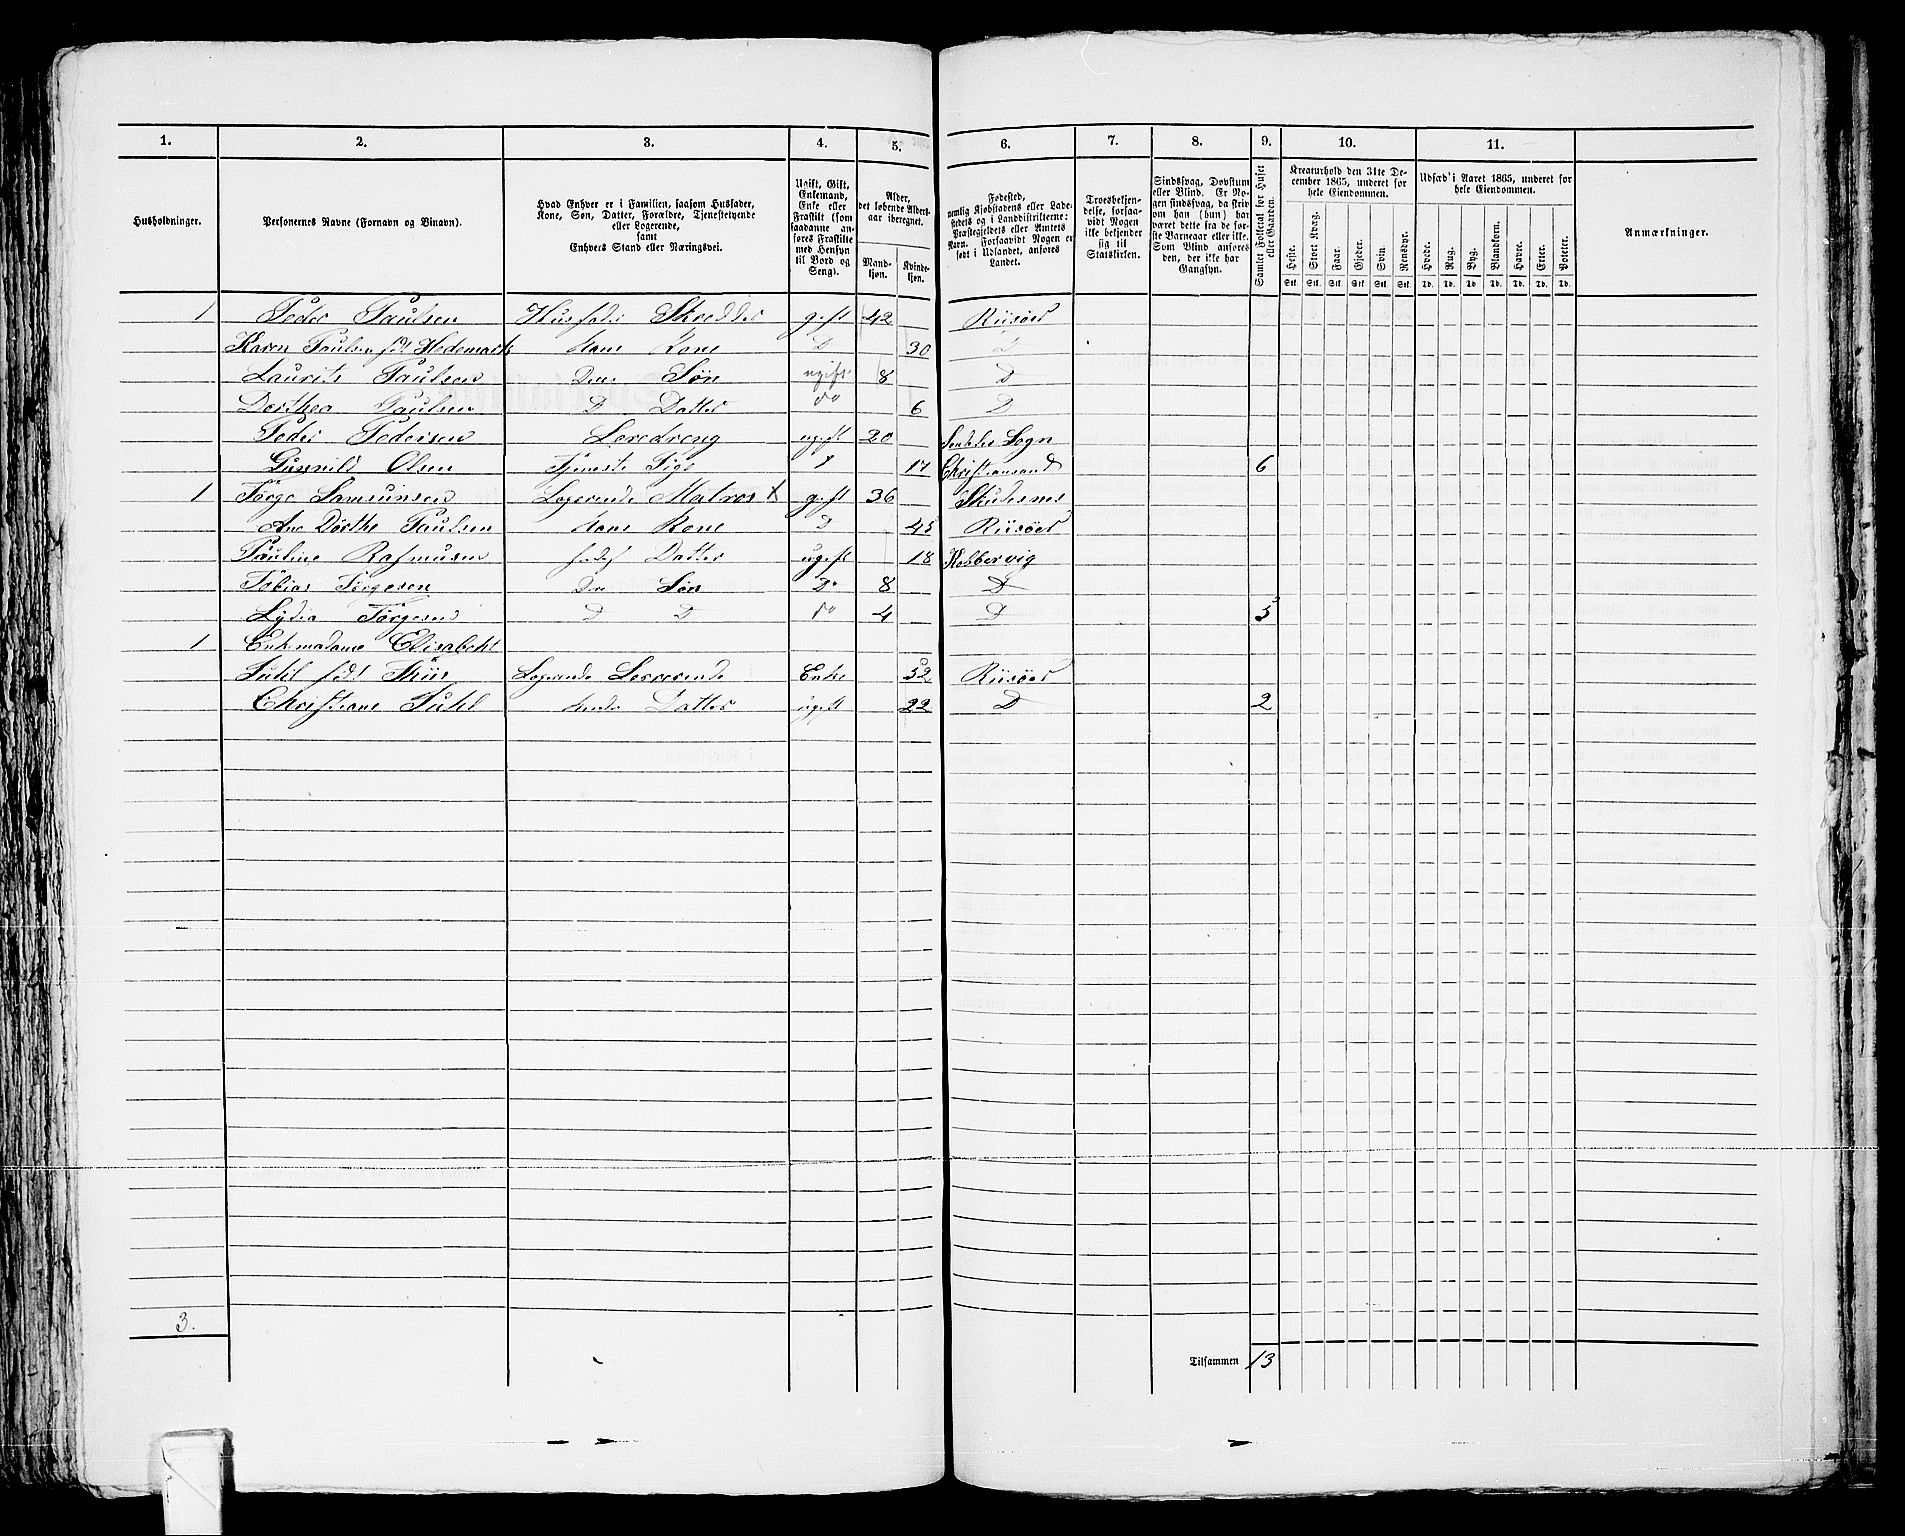 1. 2. 3. 4. 5. 6. 7. 8. 9. 10. 11.
Husholdninger.
Personernes Navne (Fornavn og Binavn).
Hvad Enhver er i Familien, saasom Husfader,
Kone, Søn, Datter, Forældre, Tjenestetyende
eller Logerende,
samt
Enhvers Stand eller Næringsvei.
Ugift, Gift,
Enkemand,
Enke eller
Fraskilt (som
saadanne an-
føres Fraskilte
med Hensyn
til Bord og
Seng).
Alder,
det løbende Alders-
aar iberegnet.
Mand-
kjøn.
Kvinde-
kjøn.
Fødested,
nemlig Kjøbstadens eller Lade-
stedets og i Landdistrikterne:
Præstegjeldets eller Amtets
Navn. Forsaavidt Nogen er
født i Udlandet, anføres
Landet.
Troesbekjen-
delse, forsaa-
vidt Nogen
ikke bekjender
sig til
Statskirken.
Sindssvag, Døvstum
eller Blind. Er No-
gen sindssvag, da skriv
om han (hun) har
været dette fra de før-
ste Barneaar eller ikke.
Som Blind anføres
den, der ikke har
Gangsyn.
Samlet Folketal for Huset
eller Gaarden.
Kreaturhold den 31te De-
cember 1865, underet for
hele Eiendommen.
Heste. Stort Kvæg. Faar. Gjeder. Svin. Rensdyr.
Stk. Stk. Stk. Stk. Stk. Stk.
Udsæd i Aaret 1865, underet for
hele Eiendommen.
Hvede. Rug. Byg. Blandkorn. Havre. Erter. Poteter.
Td. Td. Td. Td. Td. Td. Td.
Anmærkninger.
1 Peder Paulsen Husfader Skrædder gift 42 Riisøer
Karen Paulsen fdt Hedemark Hans Kone D 30 D
Laurits Paulsen Søn ugift 8 D
Dorthea Paulsen D Datter do 6 D
Peder Pedersen Leredreng ugift 20 Sogn
Gunnild Olsen Tjeneste Pige 17 Christiansand 6
1 Tørge Samsunsen Logerende Matros X gift 36 Skudesnes
Ane Dorthe Paulsen Hans Kone D 45 Riisøer
Pauline Rasmusen Datter ugift 18
Tobias Tørgesen Søn Do 8 D
Lydia Tørgesen D D do 4 D 5
1 Enkemadame Elisabeht
Juhl fdt Logerende Enke 52 Riisøer
Christiane Juhl Datter ugift 22 D 2
3.
Tilsammen 13